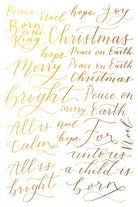 Peace Noel hope joy
Born is the King Christmas
hope Peace on Earth
Merry Peace on Earth
hope Christmas
Bright Peace on Earth
merry
All is Noel hope For
Calm unto us
Noel
All is a child is
bright born